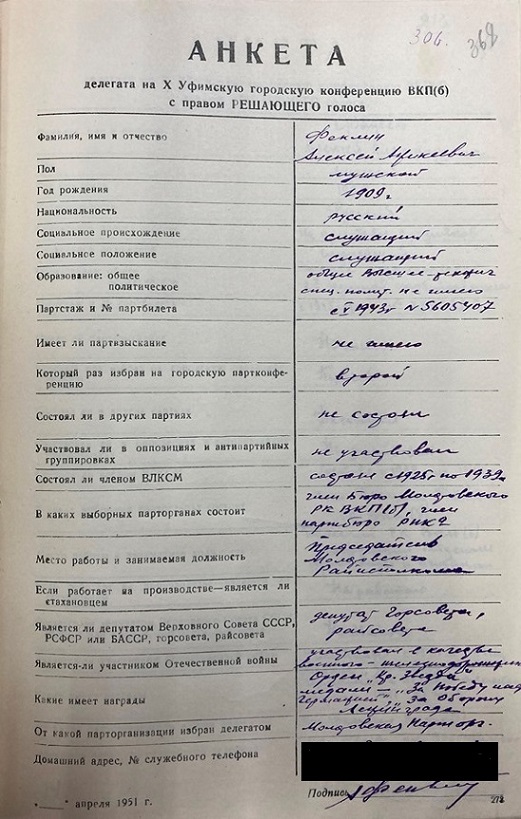 306.
368
АНКЕТА
делегата на X Уфимскую городскую конференцию ВКП(б)
с правом РЕШАЮЩЕГО голоса
Фамилия, имя и отчество
Феклин
Алексей
Пол
мужской
Год рождения
1909 г
Национальность
русский
Социальное происхождение
служащий
Социальное положение
служащий
Образование: общее
общее высшее
политическое
спец. полит. не имею
Партстаж и № партбилета
с V 1943 г N 5605407
Имеет ли партвзыскание
не имею
Который раз избран на городскую партконфе-
ренцию
второй
Состоял ли в других партиях
не состоял
Участвовал ли в оппозициях и антипартийных
группировках
не участвовал
Состоял ли членом ВЛКСМ
состоял с 1925 г по 1939 г
В каких выборных парторганах состоит
член Бюро Молотовского
РК ВКП(б), член
партбюро
Место работы и занимаемая должность
Председатель
Молотовского
Райисполкома
Если работает на производстве—является ли
стахановцем
Является ли депутатом Верховного Совета СССР,
РСФСР или БАССР, горсовета, райсовета
депутат Горсовета,
райсовета
Является-ли участником Отечественной войны
участвовал в качестве
военного - железнодорожника
Какие имеет награды
Орден „Кр. Звезда"
медали „За Победу над
Германией" „За Оборону
Ленинграда
От какой парторганизации избран делегатом
Молотовская Парторг.
Домашний адрес, № служебного телефона
Подпись
„___" апреля 1951 г.
272